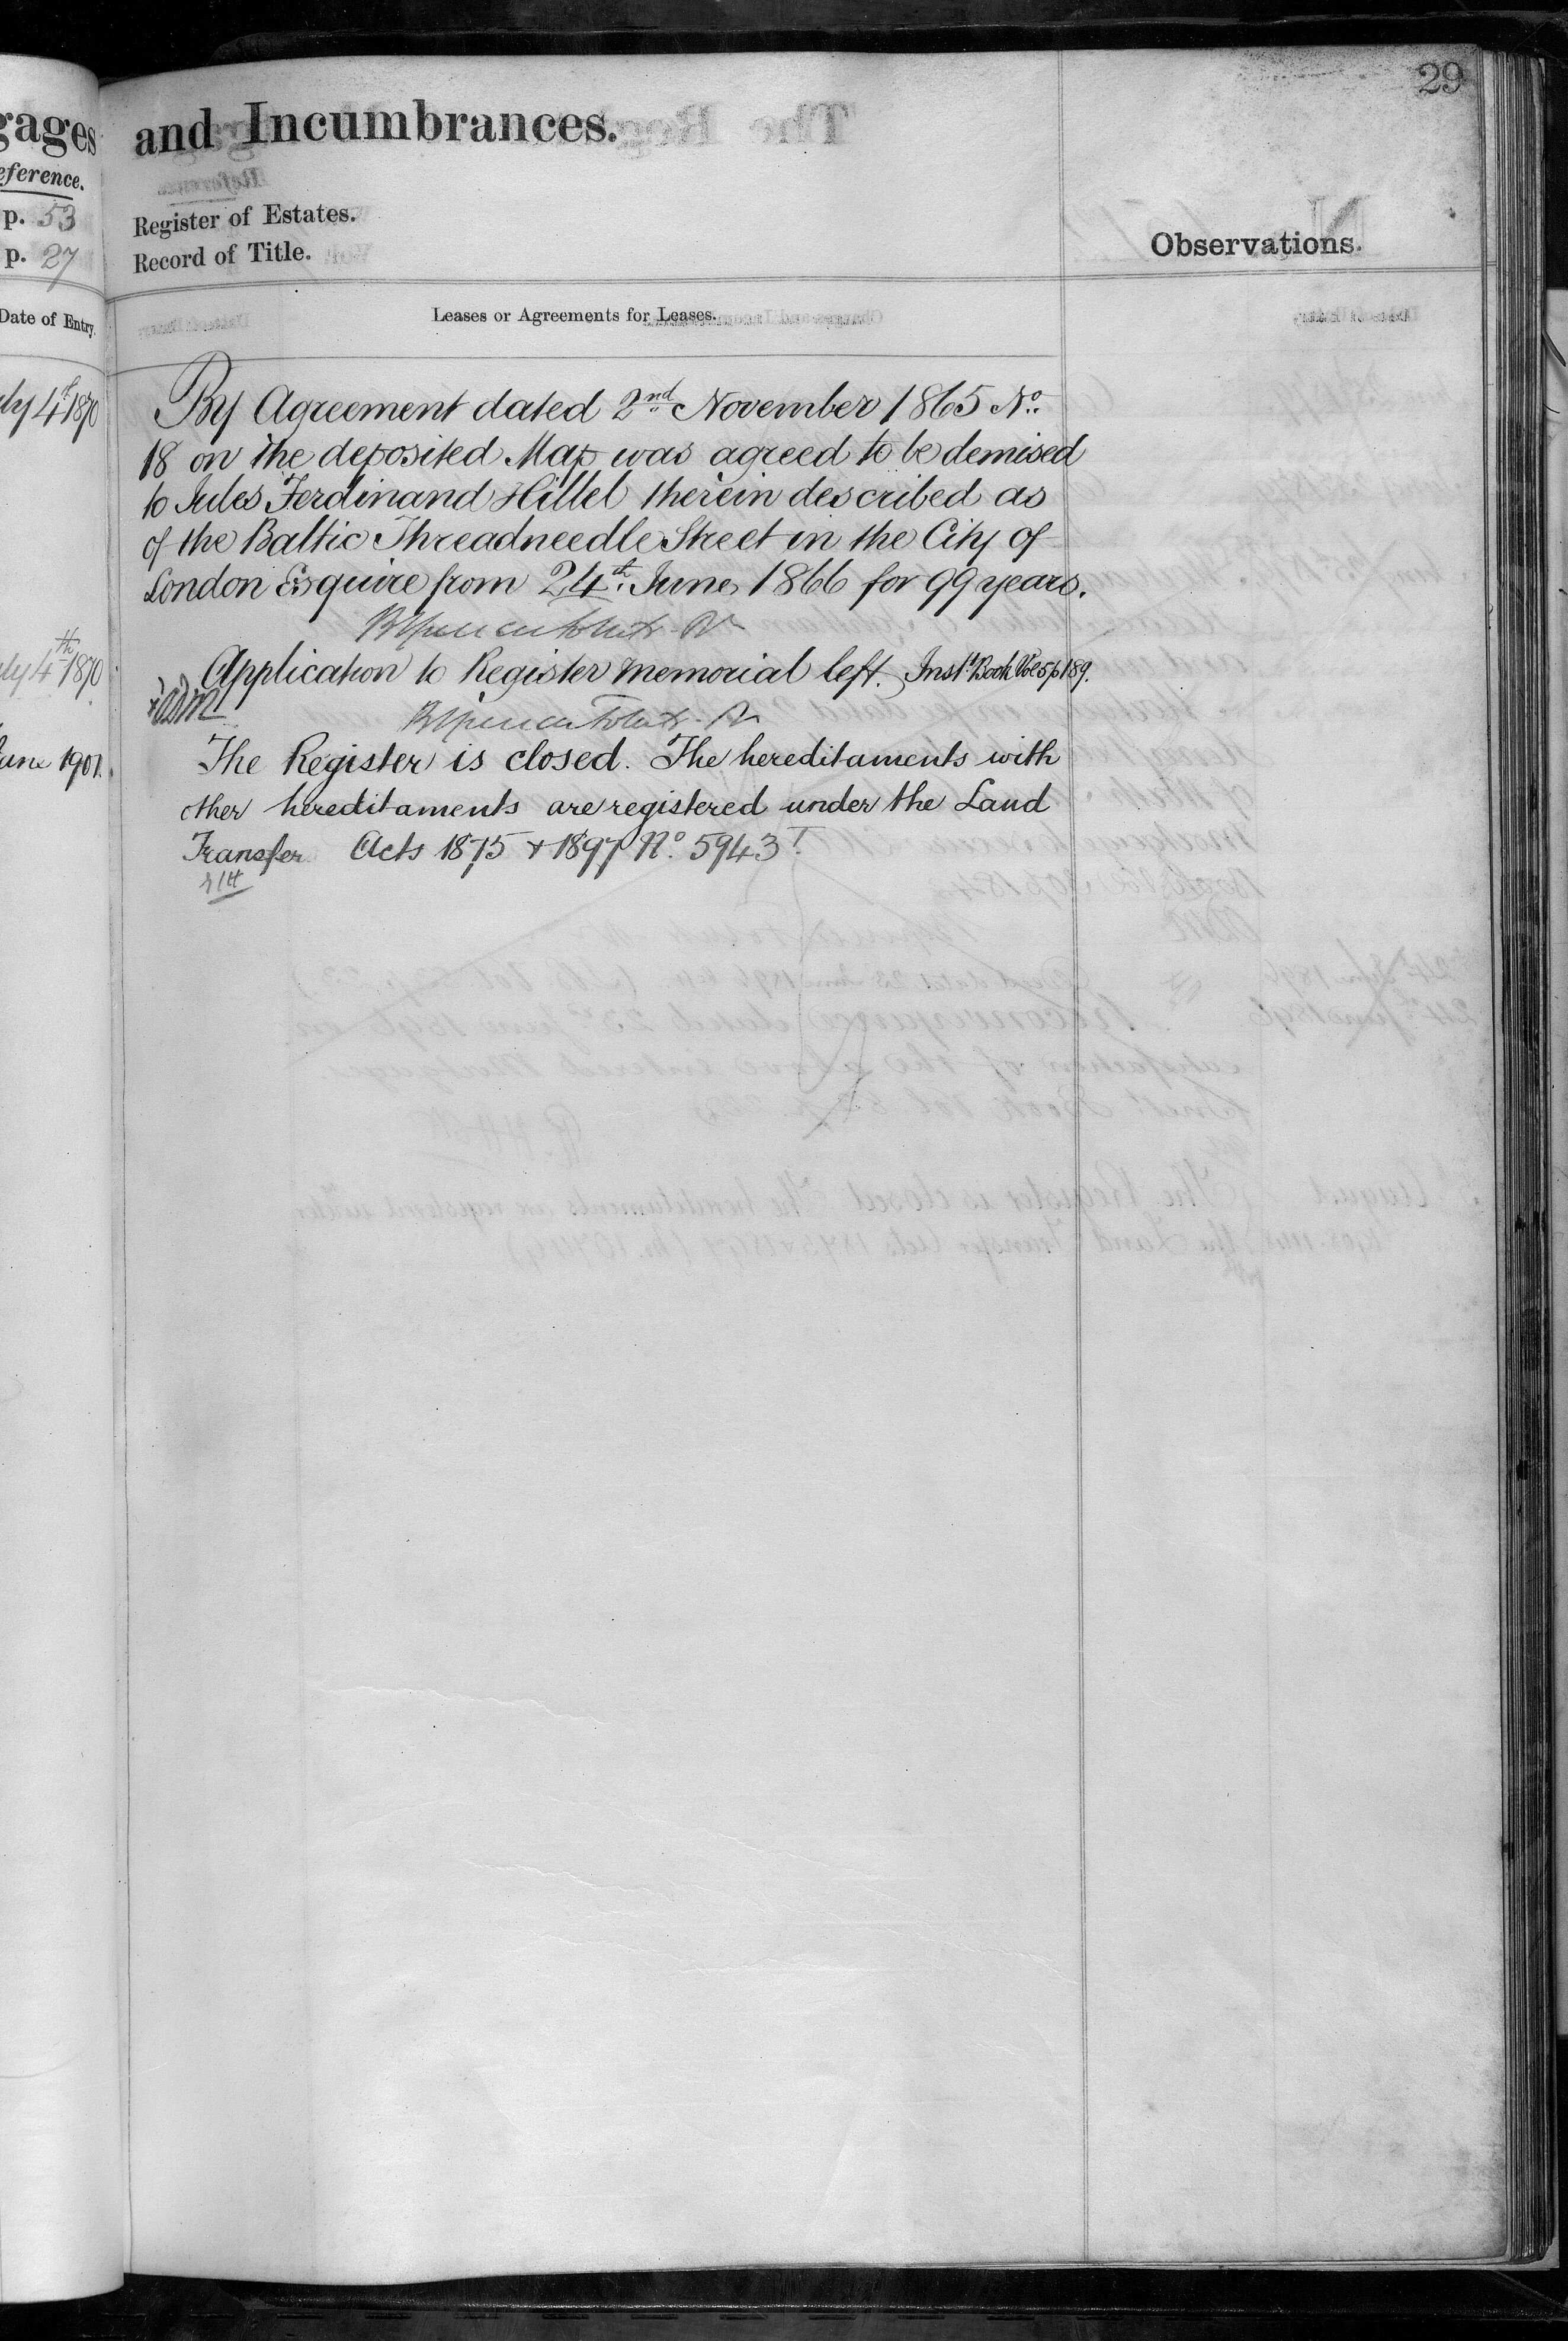 29
gages
eference.
p. 53
p. 27
Date of Entry.
uly 4th 1870
uly 4th 1870
June 1901.
and Incumbrances.
Register of Estates.
Record of Title.
Observations.
Leases or Agreements for Leases.
By Agreement dated 2nd November 1865 No.
18 on the deposited Map was agreed to be demised
to Jules Ferdinand Hillel therein described as
of the Baltic Threadneedle Street in the City of
London Esquire from 24th June 1866 for 99 years.
Application to Register memorial left. Inst. Book Vol 5 p 189.
The Register is closed. The hereditaments with
other hereditaments are registered under the Land
Transfer Acts 1875 & 1897 No. 5943